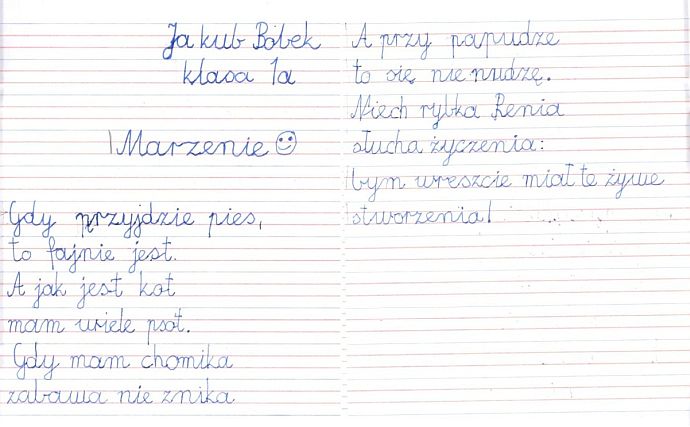 Jakub Bobek
klasa 1a
Marzenie
Gdy przyjdzie pies,
to fajnie jest.
A jak jest kot
mam wiele psot.
Gdy mam chomika
zabawa nie znika
A przy papudze
to się nie nudzę.
Niech rybka Renia
słucha życzenia:
bym wreszcie miał te żywe
stworzenia!